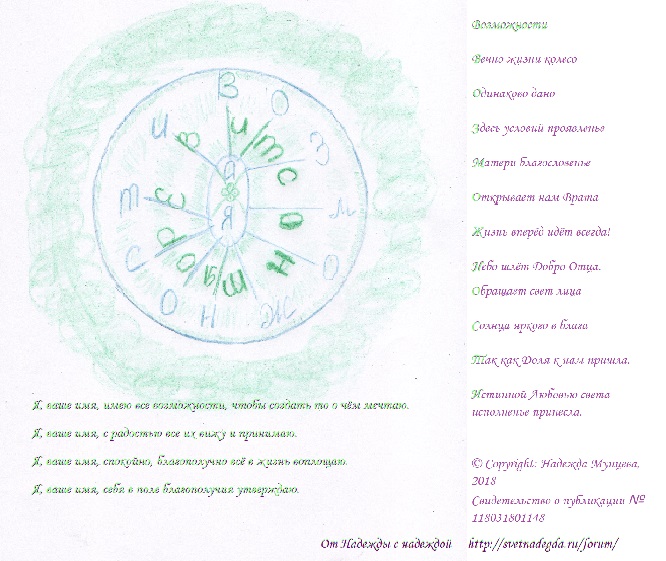 Возможности
Вечно жизни колесо
Одинаково дано
Здесь условий проявленье
Матери благословенье
Открывает нам Врата
Жизнь вперёд идёт всегда!
Небо шлёт Добро Отца.
Обращает свет лица
Солнца яркого в блага
Так как Доля к нам пришла.
Истинной Любовью света
исполненье принесла.
© Copyright: Надежда Мунцева,
2018
Свидетельство о публикации №
118031801148
В О З М О Ж Н О С Т И
Я, ваше имя, имею все возможности, чтобы создать то о чём мечтаю.
Я, ваше имя, с радостью все их вижу и принимаю.
Я, ваше имя, спокойно, благополучно всё в жизнь воплощаю.
Я, ваше имя, себя в поле благополучия утверждаю.
От Надежды с надеждой http://svetnadegda.ru/forum/